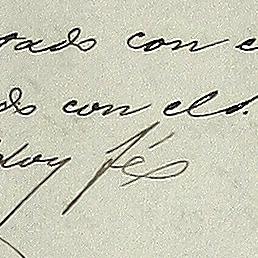 tado con e
do con el d.
doy fé